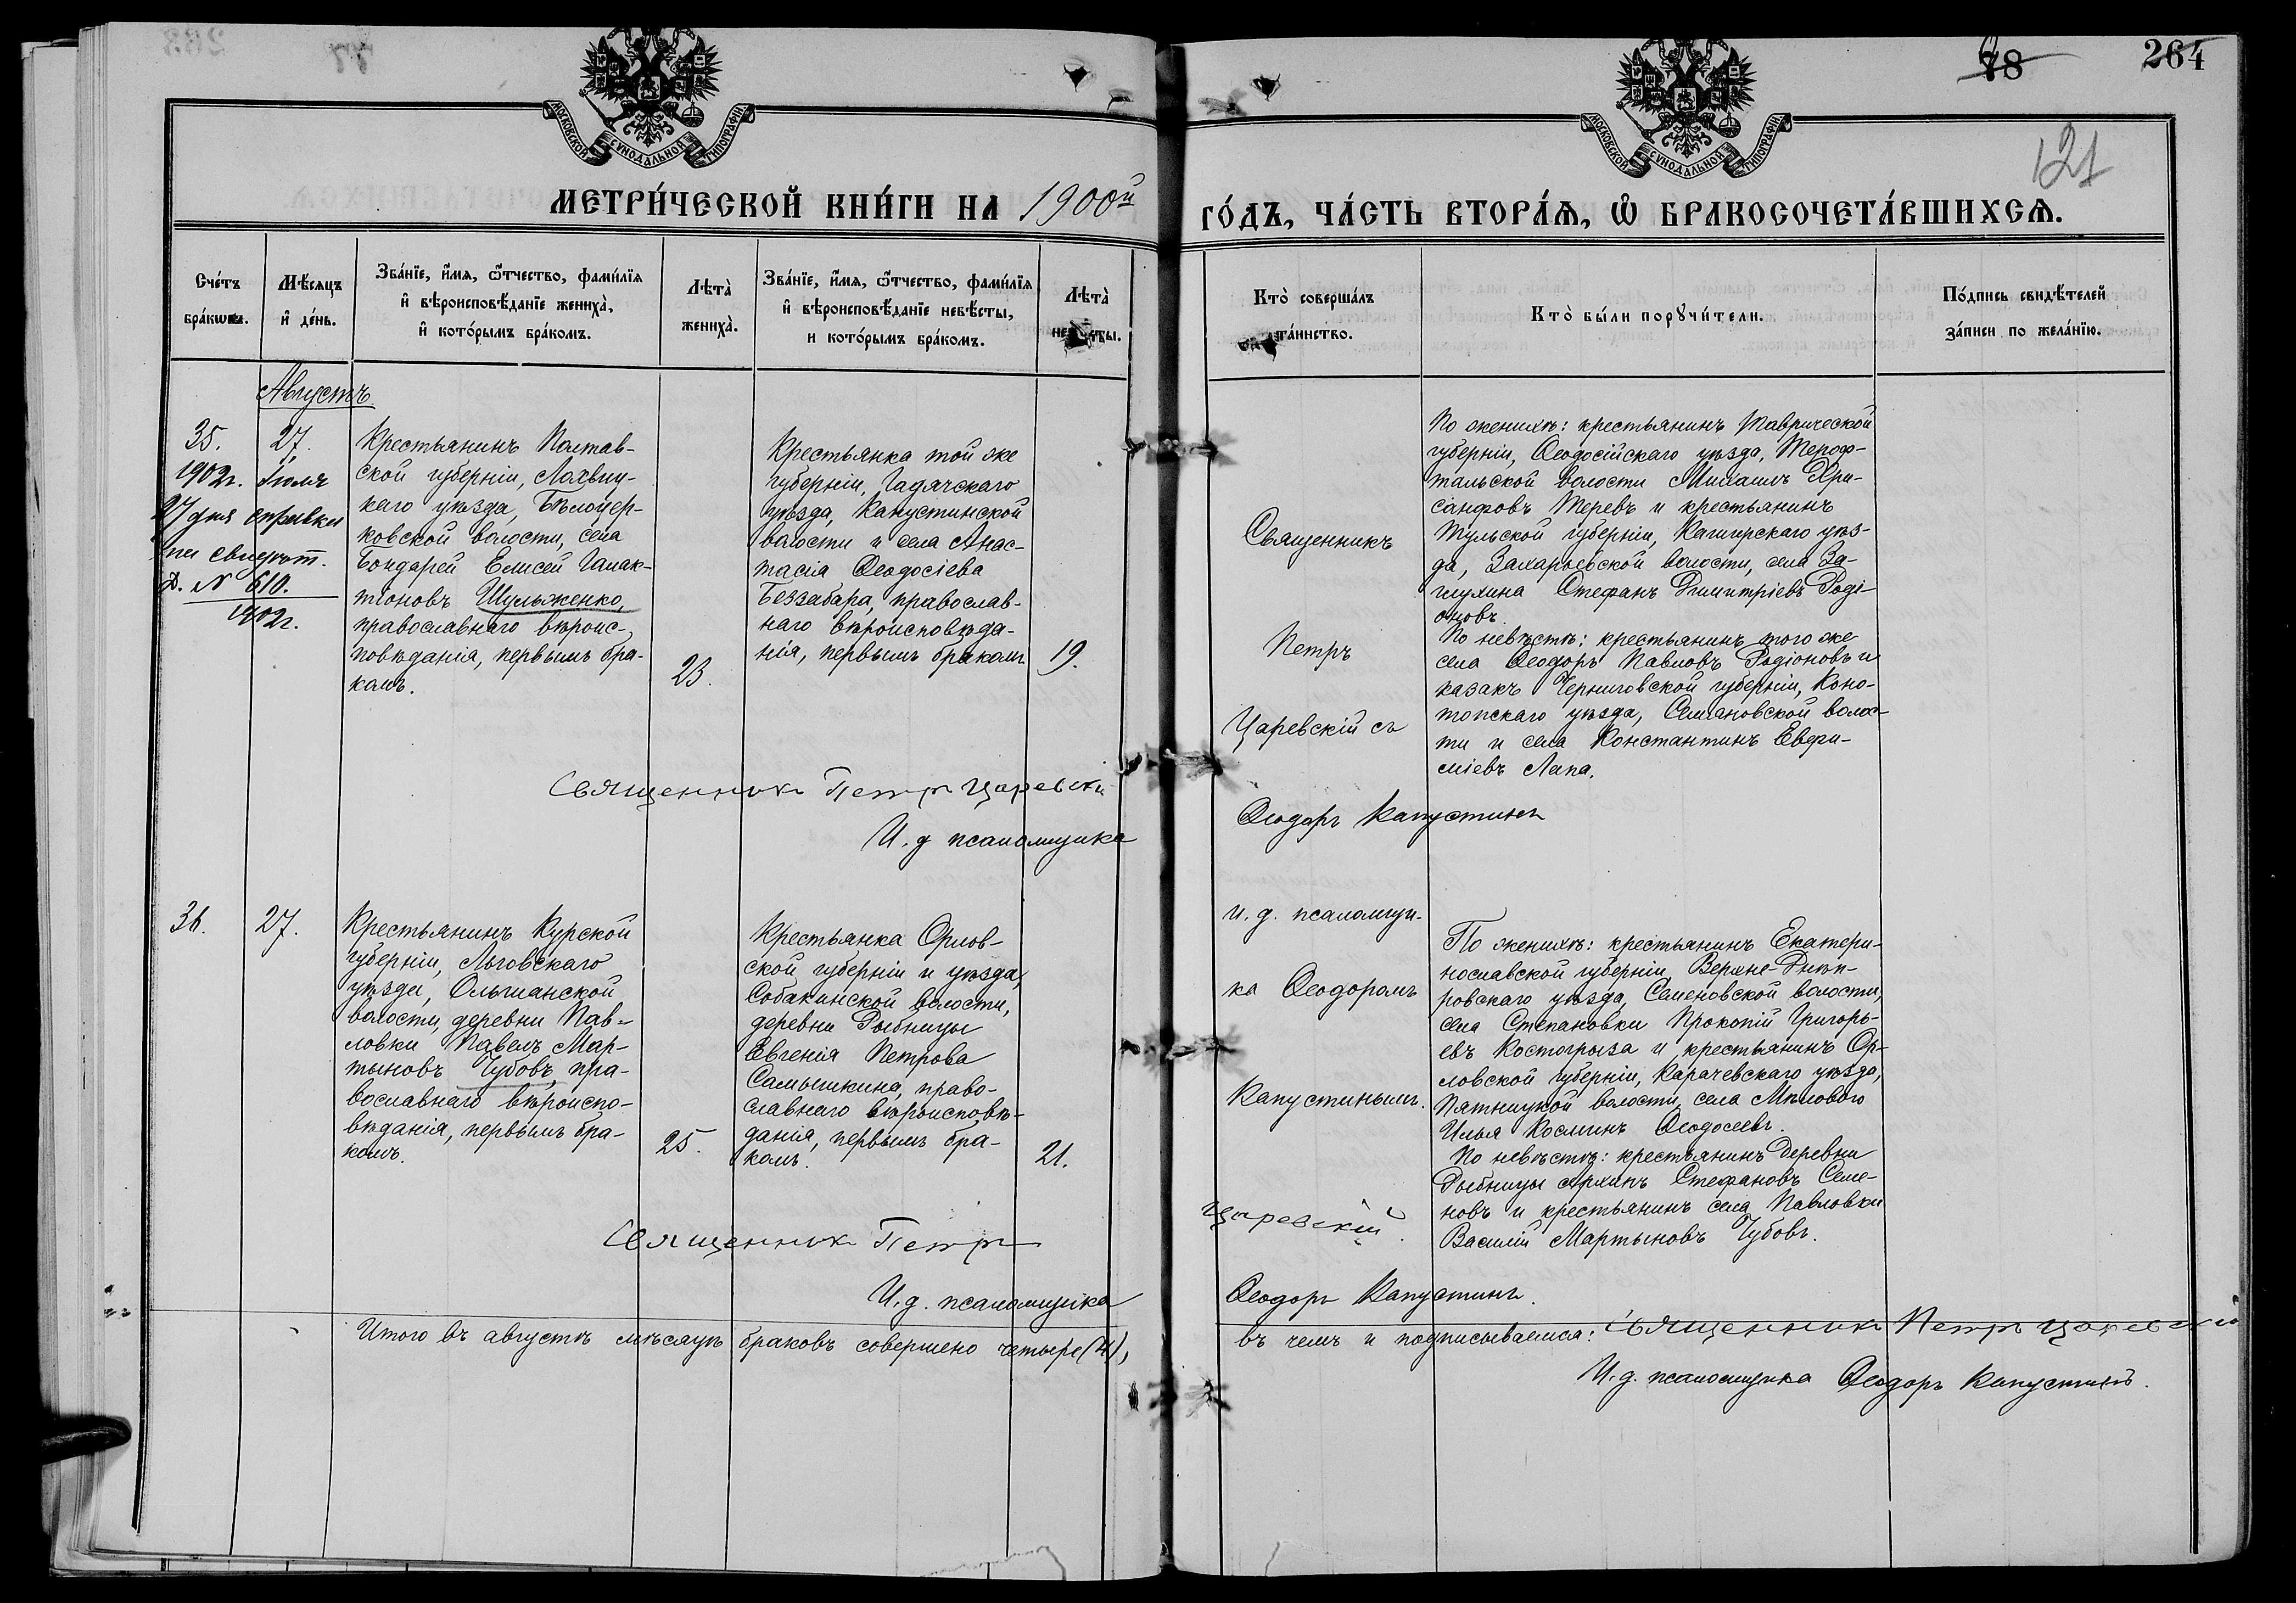 78
264
121
МОСКОВСКОЙ СѴНОДАЛЬНОЙ ТИПОГРАФІИ
МОСКОВСКОЙ СѴНОДАЛЬНОЙ ТИПОГРАФІИ
МЕТРИ́ЧЕСКОЙ КНИ́ГИ НА 1900й
ГО́ДЪ, ЧА́СТЬ ВТОРА́Ѧ, Ѽ БРАКОСОЧЕТА́ВШИХСѦ.
Сче́тъ
бра́кѡвъ.
Мѣ́сяцъ
и҆ де́нь.
Зва́нїе, и҆́мя, ѻ҆́тчество, фами́лїя
и҆ вѣроисповѣ́данїе жениха̀,
и҆ кото́рымъ бра́комъ.
Лѣта̀
жениха̀.
Зва́нїе, и҆́мя, ѻ҆́тчество, фами́лїя
и҆ вѣроисповѣ́данїе невѣ́сты,
и кото́рымъ бра́комъ.
Лѣта̀
невѣсты.
Кто̀ соверша́лъ
та́инство.
Кто̀ бы́ли порꙋчи́тели.
По́дпись свидѣ́телей
за́писи по жела́нїю.
Августъ
35.
27.
1902г. Іюля
27 дня справка
на свидѣт.
Д. N 610.
1902г.
Крестьянинъ Полтав-
ской губерніи, Лохвиц-
каго уѣзда, Бѣлоцер-
ковской волости, села
Бондарей Елисей Галак-
тіоновъ Шульженко,
православнаго вѣроис-
повѣданія, первымъ бра-
комъ.
23.
Крестьянка той же
губерніи, Гадячскаго
уѣзда, Капустинской
волости и села Анас-
тасія Ѳеодосіева
Беззабара, православ-
наго вѣроисповѣда-
нія, первымъ бракомъ
19.
Священникъ
Петръ
Царевскій съ
По женихѣ: крестьянинъ Таврической
губерніи, Ѳеодосійскаго уѣзда,
тальской волости Михаилъ Хри-
санфовъ Теревъ и крестьянинъ
Тульской губерніи, Каширскаго уѣз-
да, Захарьевской волости, села За-
глухина Стефанъ Димитріевъ Родi-
оновъ.
По невѣстѣ: крестьянинъ того же
села Ѳеодоръ Павловъ Родіоновъ и
казакъ Черниговской губерніи, Коно-
топскаго уѣзда, Семяновской волос-
ти и села Константинъ Евфи-
міевъ Лапа.
Священникъ Петръ Царевскій
И. д псаломщика Ѳеодоръ Капустинъ
36.
27.
Крестьянинъ Курской
губерніи, Льговскаго
уѣзда, Ольшанской
волости, деревни Пав-
ловки Павелъ Мар-
тыновъ Чубовъ, пра-
вославнаго вѣроиспо-
вѣданія, первымъ бра-
комъ.
25.
Крестьянка Орлов-
ской губерніи и уѣзда,
Собакинской волости,
деревни Рыбницы
Евгенія Петрова
Самышкина, право-
славнаго вѣроисповѣ-
данія, первымъ бра-
комъ.
21.
и. д. псаломщи-
ка Ѳеодоромъ
Капустинымъ.
По женихѣ: крестьянинъ Екатери-
нославской губерніи Верхне-Днѣп-
ровскаго уѣзда, Семеновской волости,
села Степановки Прокопій Григорь-
евъ Костогрыза и крестьянинъ Ор-
ловской губерніи, Карачевскаго уѣзда,
Пятницкой волости, села Мѣлового
Илья Косминъ Ѳеодосеевъ.
По невѣстѣ: крестьянинъ деревни
Рыбницы Архипъ Стефановъ Семе-
новъ и крестьянинъ села Павловки
Василій Мартыновъ Чубовъ.
Священникъ Петръ Царевскій.
И. д. псаломщика Ѳеодоръ Капустинъ.
Итого въ августѣ мѣсяцѣ браковъ совершено четыре (4), въ чемъ и подписываемся: Священникъ Петръ Царевскій
И. д. псаломщика Ѳеодоръ Капустинъ.